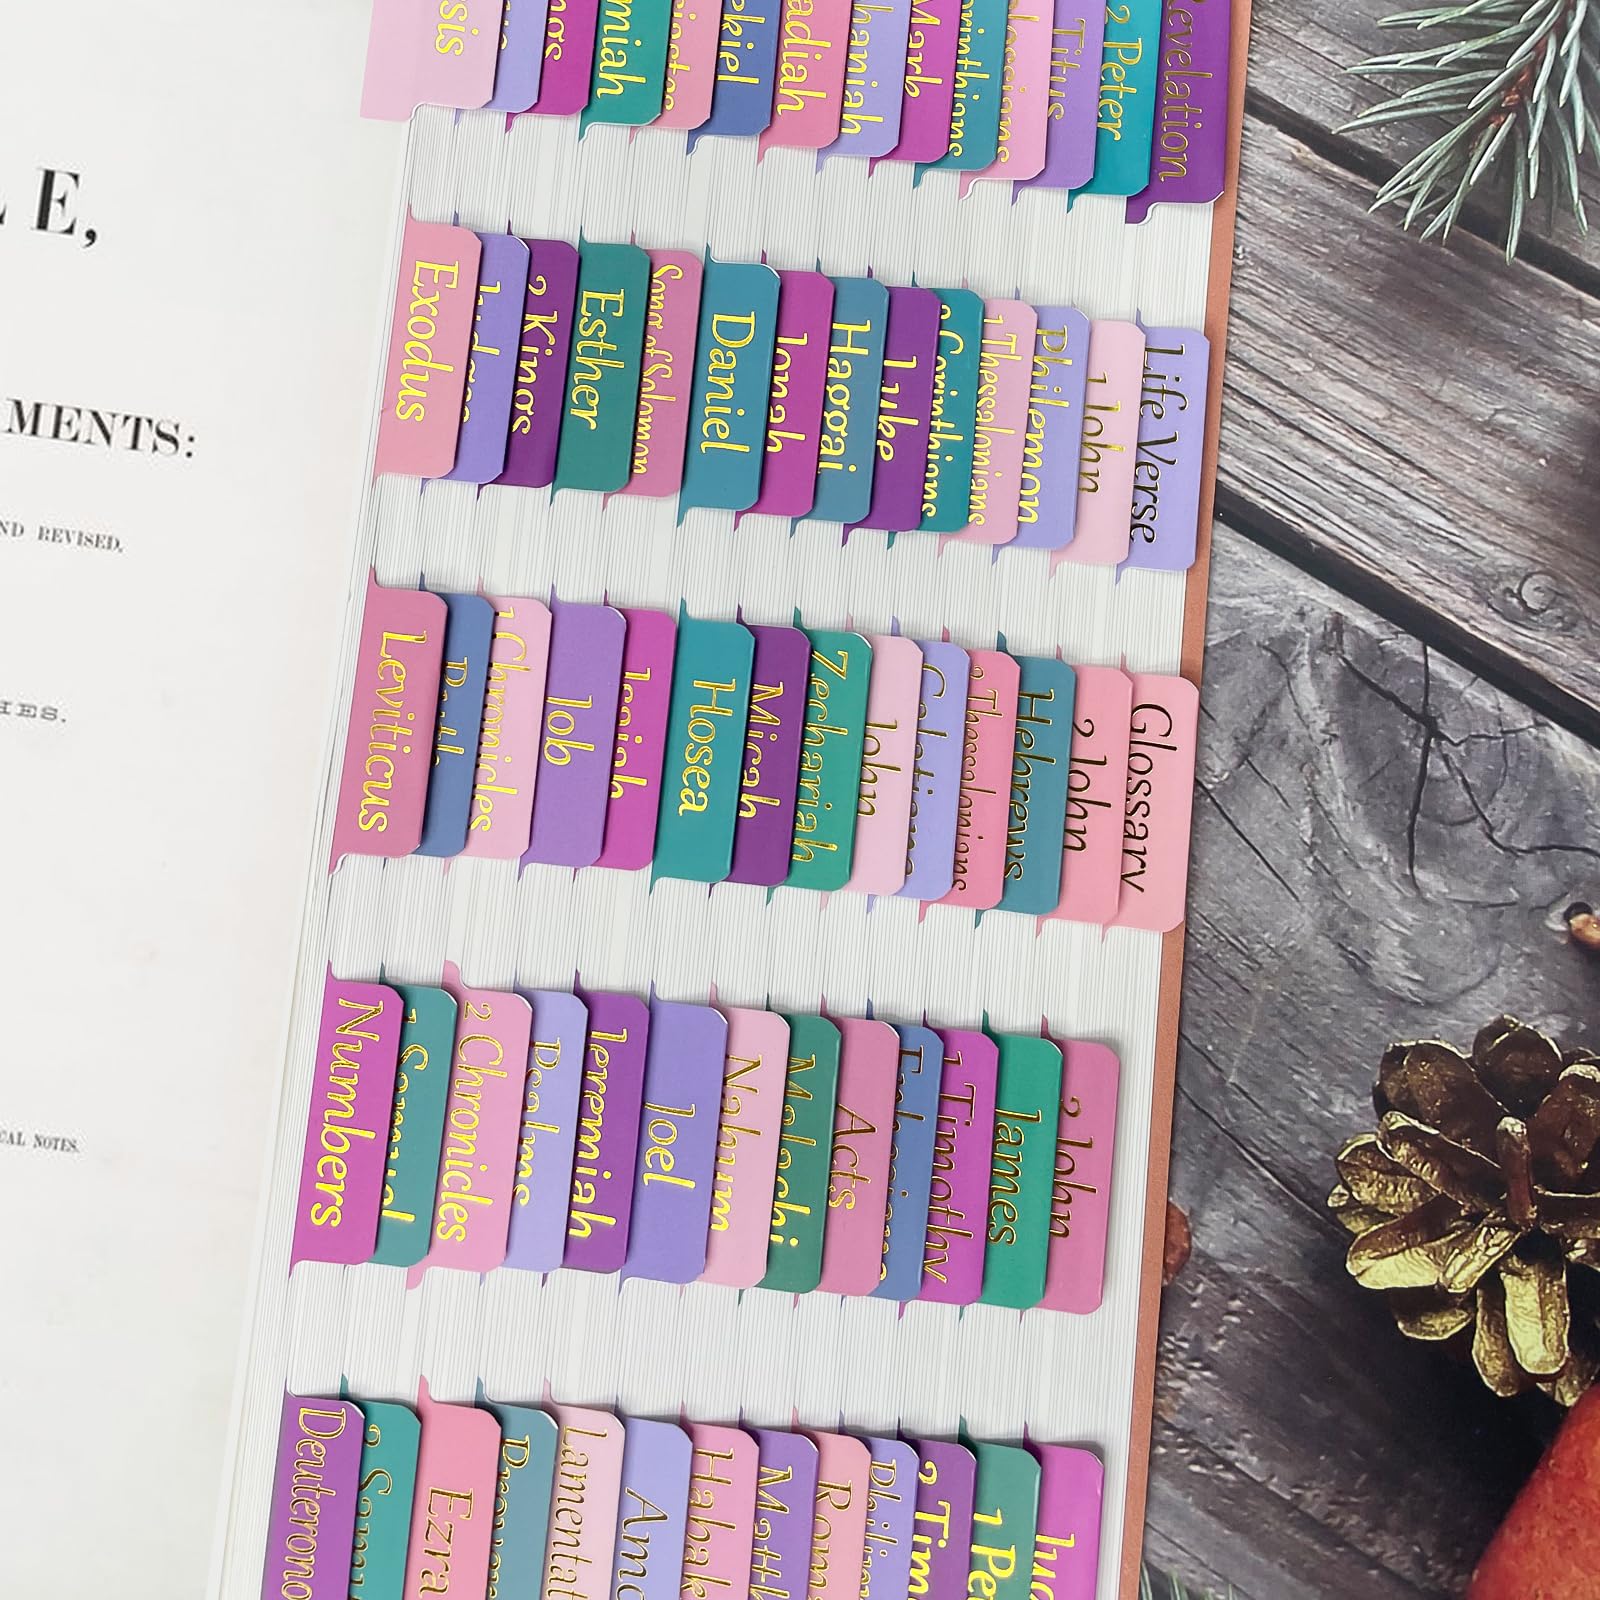 LE,
MENTS:
ND REVISED.
CAL NOTES.
sis
miah
kiel
adiah
haniah
Mark
orinthians
olossians
Titus
2 Peter
Revelation
Exodus
Judges
2 Kings
Esther
Song of Solomon
Daniel
Jonah
Haggai
Luke
2 Corinthians
1 Thessalonians
Philemon
1 John
Life Verse
Leviticus
Ruth
1 Chronicles
Job
Isaiah
Hosea
Micah
Zechariah
John
Galatians
2 Thessalonians
Hebrews
2 John
Glossary
Numbers
1 Samuel
2 Chronicles
Psalms
Jeremiah
Joel
Nahum
Malachi
Acts
Ephesians
1 Timothy
James
3 John
Deuterono
2 Samu
Ezra
Prover
Lamentat
Amo
Habakk
Matth
Roma
Philipp
2 Tim
1 Pe
Jud